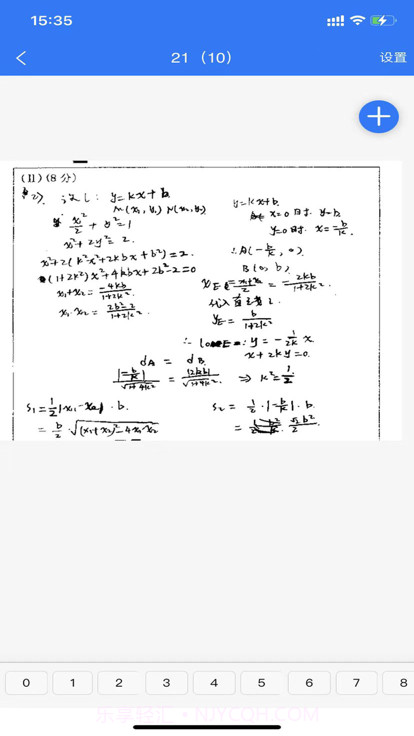 15:35
21 (10)
设置
(II)(8分)
(2). 设l: y=kx+b
M(x₁, y₁) N(x₂, y₂)
x²/2 + y²=1
x²+2y²=2.
x²+2(k²x²+2kbx+b²)=2
(1+2k²)x²+4kbx+2b²-2=0
x₁+x₂=-4kb/1+2k²
x₁·x₂=2b²-2/1+2k²
y=kx+b
x=0时. y=b
y=0时. x=-b/k
∴A(-b/k, 0)
B(0, b)
x_E = x₁+x₂/2 = -2kb/1+2k²
y_E = b/1+2k²
∴ l_OE: y=-1/2k x
x+2ky=0.
d_A = d_B
|-b/k|/√1+4k² = |2kb|/√1+4k² ⇒ k²=1/2
S₁=1/2|x₁-x₂|·b
=b/2·√(x₁+x₂)²-4x₁x₂
S₂=1/2·|-b/k|·b
= √2b²/2
0 1 2 3 4 5 6 7 8